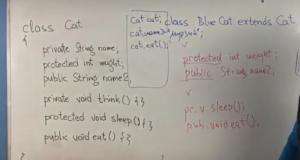 class Cat
{
private String name;
protected int weight;
public String name2;
private void think() { }
protected void sleep() { }
public void eat() { }
}
Cat cat;
cat.eat();
class Blue Cat extends Cat
protected int weight;
public String name2;
pr. v. sleep()
pub. void eat()